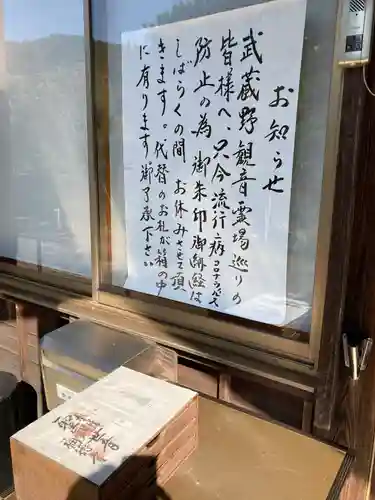 お知らせ
武蔵野観音霊場巡りの
皆様へ、只今流行病コロナウイルス
防止の為、御朱印御納経は
しばらくの間、お休みさせて頂
きます。代替のお札が箱の中
に有ります御了承下さい